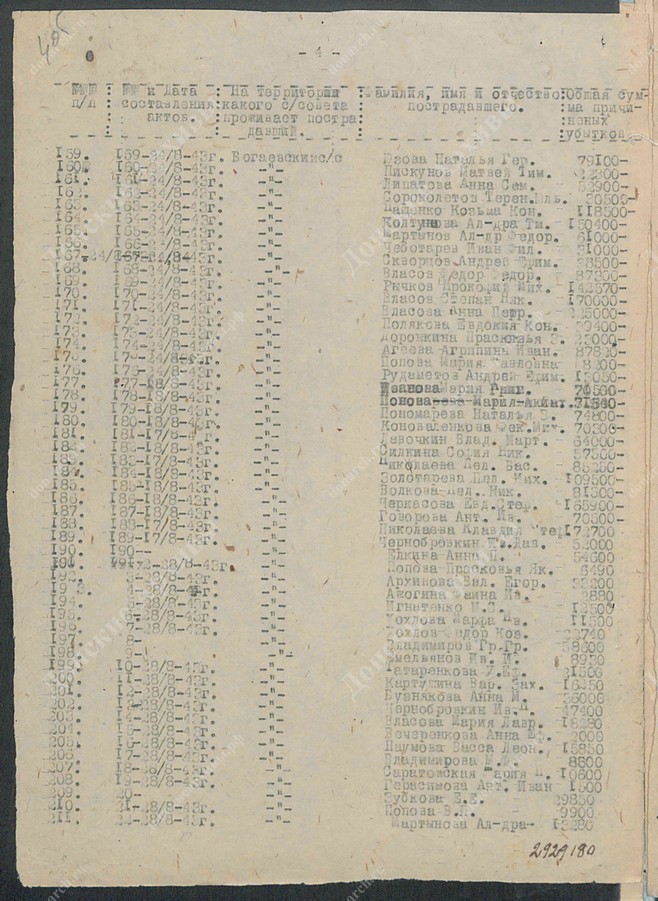 485
- 4 -
№№ № и Дата На территории Фамилия, имя и отчество Общая сум-
п/п составления какого с/совета пострадавшего. ма причи-
актов. проживает постра- неных
давший. убытков
159. 159-24/8-43г. Богаевский с/с Наталья Гер. 79100-
160. 160-24/8-43г. -"- Пискунов Матвей Тим.
161. 161-24/8-43г. -"- Липатова Анна Сем. 52900-
162. 162-24/8-43г. -"- Сороколетов Терен. Иль. 30500-
163. 163-24/8-43г. -"- Пащенко Козьма Кон. 118500-
164. 164-24/8-43г. -"- Колтунова Ал-дра Тм. 150400-
165. 165-24/8-43г. -"- Мартынов Ал-др Федор. 61000-
166. 166-24/8-43г. -"- Чеботарев Иван Фил. 31000-
167. 167-24/8-43г. -"- Скворцов Андрей Ефим. 68500-
168. 168-24/8-43г. -"- Власов Федор Федор. 87300-
169. 169-24/8-43г. -"- Рычков Прокофий Мих. 142570-
170. 170-24/8-43г. -"- Власов Степан Ник. 170000-
171. 171-24/8-43г. -"- Власова Анна Петр. 225000-
172. 172-24/8-43г. -"- Полякова Евдокия Кон.
173. 173-24/8-43г. -"- Доронкина Прасковья
174. 174-24/8-43г. -"- Агеева Агрипина Иван. 87820-
175. 175-24/8-43г. -"- Попова Мария Павловна
176. 176-24/8-43г. -"- Рудаметов Андрей Ефим.
177. 177-18/8-43г. -"- Иванова Мария Григ. 70500-
178. 178-18/8-43г. -"- Пономарева Мария 31560-
179. 179-18/8-43г. -"- Пономарева Наталья 74800-
180. 180-18/8-43г. -"- Коноваленкова Фек. Мит. 70300-
181. 181-17/8-43г. -"- Девочкин Влад. Март. 64000-
182. 182-17/8-43г. -"- Силкина София Ник. 57500-
183. 183-18/8-43г. -"- Николаева Пел. Вас.
184. 184-18/8-43г. -"- Золотарева Пел. Мих. 109500-
185. 185-18/8-43г. -"- Волкова Пел. Ник. 81500-
186. 186-18/8-43г. -"- Черкасова Евд. Стер. 165900-
187. 187-18/8-43г. -"- Говорова Ант. Ив. 70500-
188. 188-17/8-43г. -"- Николаева Клавдия 172700
189. 189-17/8-43г. -"- Чернобровкин Ив. Дав. 52000
190. 190-- -"- Елкина Анна П. 54600
191. 2-28/8-43г. -"- Попова Прасковья Як. 6490
192. 3-28/8-43г. -"- Архипова Вал. Егор. 35200
193. 4-28/8-43г. -"- Ажогина Фаина Ив. 2880
194. 5-28/8-43г. -"- Игнатенко М.С. 12500
195. 6-28/8-43г. -"- Хохлова Марфа Ив. 11500
196. 7-28/8-43г. -"- Хохлов Федор Коз. 23740
197. 8- -"- Владимиров Гр.Гр. 58600
198. 9- -"- Емельянов Ив. И. 8930
199. 10-28/8-43г. -"- Татаренкова У.Ед. 21500
200. 11-28/8-43г. -"- Картушина Вар. Зах. 16250
201. 12-28/8-43г. -"- Бузнякова Анна М. 36000
202. 13-28/8-43г. -"- Чернобровкин Ив.П. 47400
203. 14-28/8-43г. -"- Власова Мария Лавр. 18280
204. 15-28/8-43г. -"- Вечеренкова Анна Еф. 2000
205. 16-28/8-43г. -"- Наумова Васса Леон. 15850
206. 17-28/8-43г. -"- Владимирова М.И. 8800
207. 18-28/8-43г. -"- Саратовская Мария П. 10600
208. 19-28/8-43г. -"- Герасимова Ант. Иван 1500
209. 20- -"- Зубкова Е.Е. 29850-
210. 21-28/8-43г. -"- Попова В.К. 9900-
211. 22-28/8-43г. -"- Мартынова Ал-дра- 13280
2929180